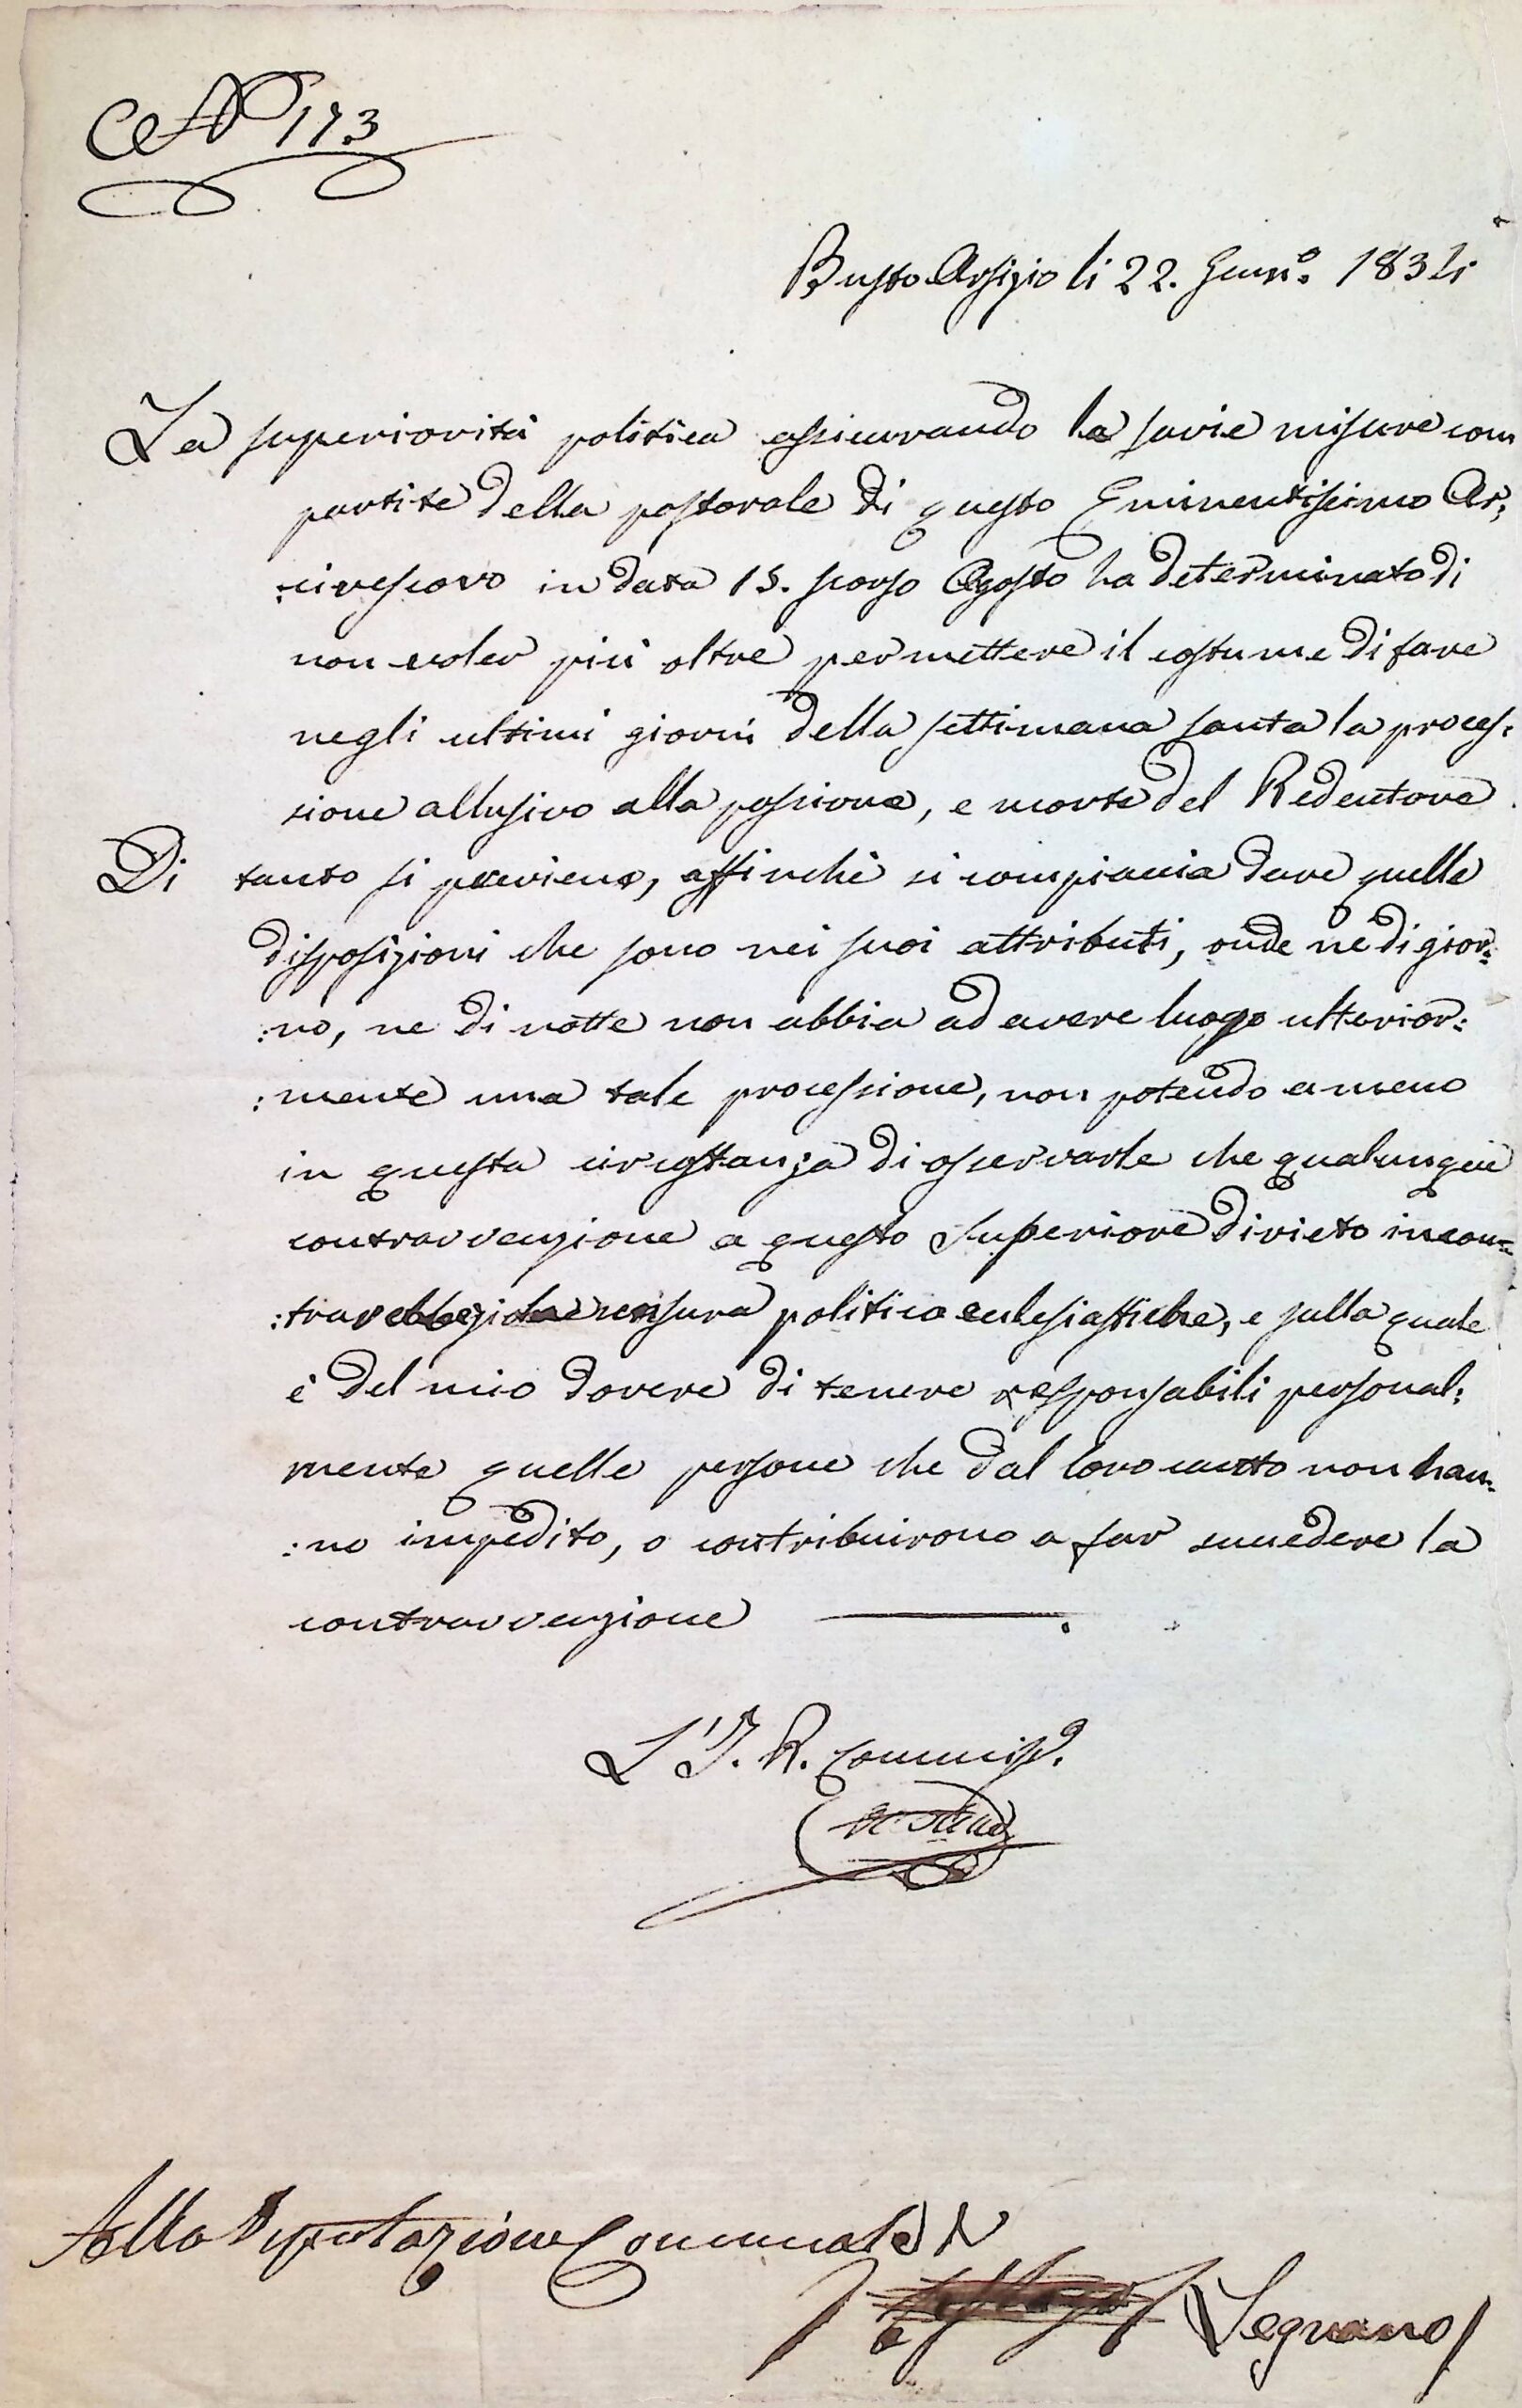 N° 173
Busto Arsizio li 22. Genn.° 1834
La superiorità politica assicurando le savie misure com
partite della pastorale di questo Eminentissimo Ar:
:civescovo in data 15. scorso Agosto ha determinato di
non voler più oltre permettere il costume di fare
negli ultimi giorni della settimana santa la proces:
sione allusivo alla passione, e morte del Redentore.
Di tanto si previene, affinchè si compiaccia dare quelle
disposizioni che sono nei suoi attributi, onde nè di gior:
:no, ne di notte non abbia ad avere luogo ulterior:
:mente una tale processione, non potendo a meno
in questa circostanza di osservarle che qualunque
contravvenzione a questo Superiore divieto incon:
:trarebbe censura politica eclesiastiche, e sulla quale
è del mio dovere di tenere responsabili personal:
mente quelle persone che dal loro canto non han:
:no impedito, o contribuirono a far succedere la
contravvenzione
L'I. R. Commiss.
Alla Deputazione Comunale di
Legnano